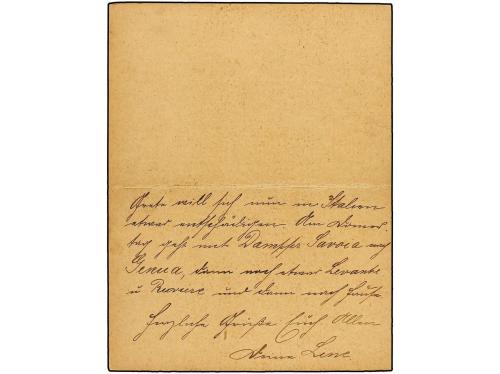 Grete will sich nun in Italien
etwas entschädigen. Am Donners
tag geht mit Dampfer Savoia nach
Genua, dann noch etwas Levante
u Riviera und dann nach Hause
Herzliche Grüße Euch Allen
Deine Lene